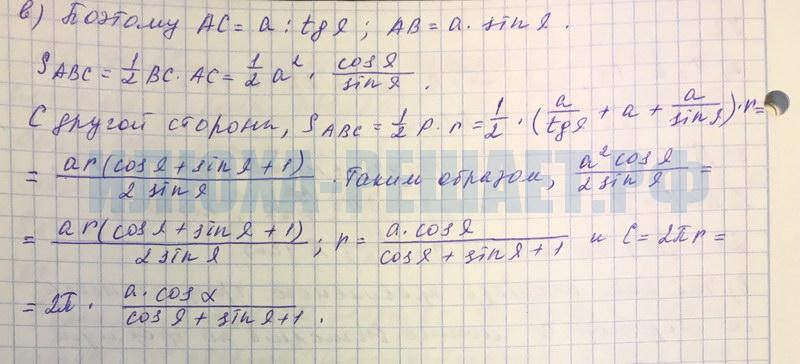 в) Поэтому AC = a : tg α ; AB = a · sin α .
S ABC = 1/2 BC · AC = 1/2 a² · cos α / sin α .
С другой стороны, S ABC = 1/2 P · r = 1/2 · (a/tg α + a + a/sin α) · r =
= ar(cos α + sin α + 1) / 2 sin α . Таким образом, a² cos α / 2 sin α =
= ar(cos α + sin α + 1) / 2 sin α ; r = a · cos α / cos α + sin α + 1 и C = 2πr =
= 2π · a · cos α / cos α + sin α + 1 .
ИЛЮХА-РЕШАЕТ.РФ